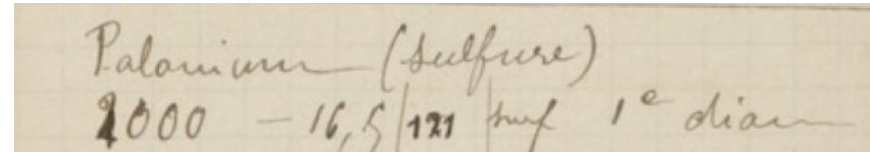 Polonium (sulfure)
2000 - 16,5 | 121 | surf 1e diam